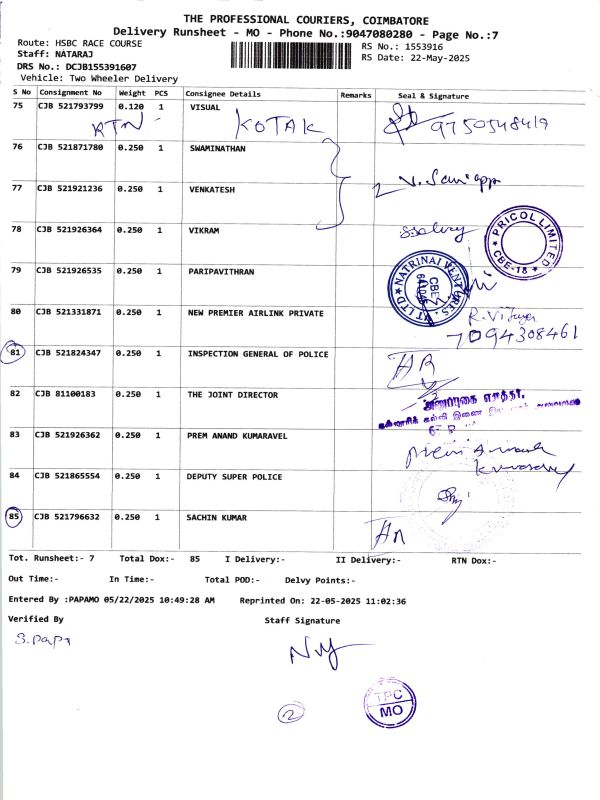 THE PROFESSIONAL COURIERS, COIMBATORE
Delivery Runsheet - MO - Phone No.:9047080280 - Page No.:7
Route: HSBC RACE COURSE
RS No.: 1553916
Staff: NATARAJ
RS Date: 22-May-2025
DRS No.: DCJB155391607
Vehicle: Two Wheeler Delivery
S No Consignment No Weight PCS Consignee Details Remarks Seal & Signature
75 CJB 521793799 0.120 1 VISUAL
RTN - KOTAK 9750548419
76 CJB 521871780 0.250 1 SWAMINATHAN
77 CJB 521921236 0.250 1 VENKATESH
78 CJB 521926364 0.250 1 VIKRAM
PRICOL LIMITED
CBE-18
79 CJB 521926535 0.250 1 PARIPAVITHRAN
NATRINAI VENTURES
CBE
80 CJB 521331871 0.250 1 NEW PREMIER AIRLINK PRIVATE
7094308461
81 CJB 521824347 0.250 1 INSPECTION GENERAL OF POLICE
82 CJB 81100183 0.250 1 THE JOINT DIRECTOR
83 CJB 521926362 0.250 1 PREM ANAND KUMARAVEL
84 CJB 521865554 0.250 1 DEPUTY SUPER POLICE
85 CJB 521796632 0.250 1 SACHIN KUMAR
Tot. Runsheet:- 7 Total Dox:- 85 I Delivery:- II Delivery:- RTN Dox:-
Out Time:- In Time:- Total POD:- Delvy Points:-
Entered By :PAPAMO 05/22/2025 10:49:28 AM Reprinted On: 22-05-2025 11:02:36
Verified By Staff Signature
S.papa
TPC
MO
2